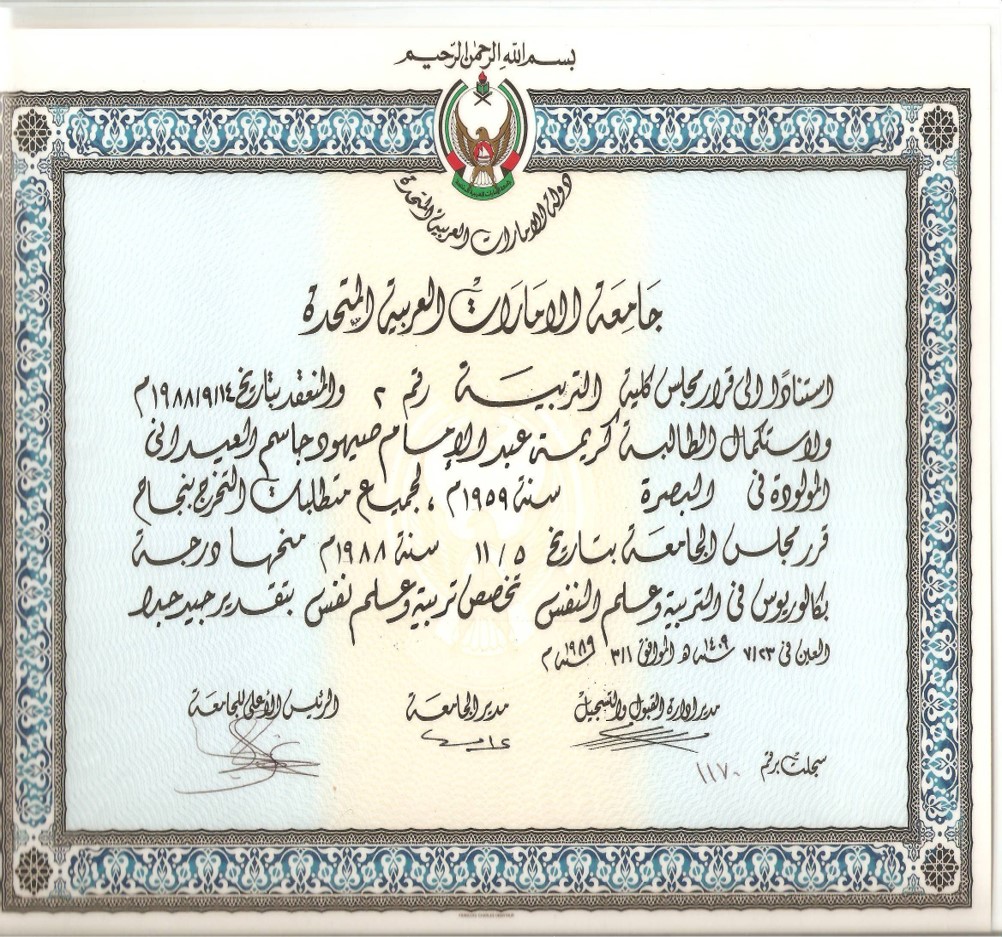 بسم الله الرحمن الرحيم
دولة الإمارات العربية المتحدة
جامعة الإمارات العربية المتحدة
استنادًا الى قرار مجلس كلية التربيـــة رقم ٢ والمنعقد بتاريخ ١٩٨٨/٩/١٤م
ولاستكمال الطالبة كريمة عبد الإمام صيهود جاسم العيدانى
المولودة فى البصرة سنة ١٩٥٩م ، لجميع متطلبات التخرج بنجاح
قرر مجلس الجامعة بتاريخ ١١/٥ سنة ١٩٨٨م منحها درجة
بكالوريوس فى التربية وعلم النفس تخصص تربية وعلم نفس بتقدير جيد جدا
العين فى ٧/٢٣ سنة ١٤٠٩ هـ الموافق ٣/١ سنة ١٩٨٩م
مدير ادارة القبول والتسجيل مدير الجامعة الرئيس الأعلى للجامعة
سجلت برقم ١١٧٠